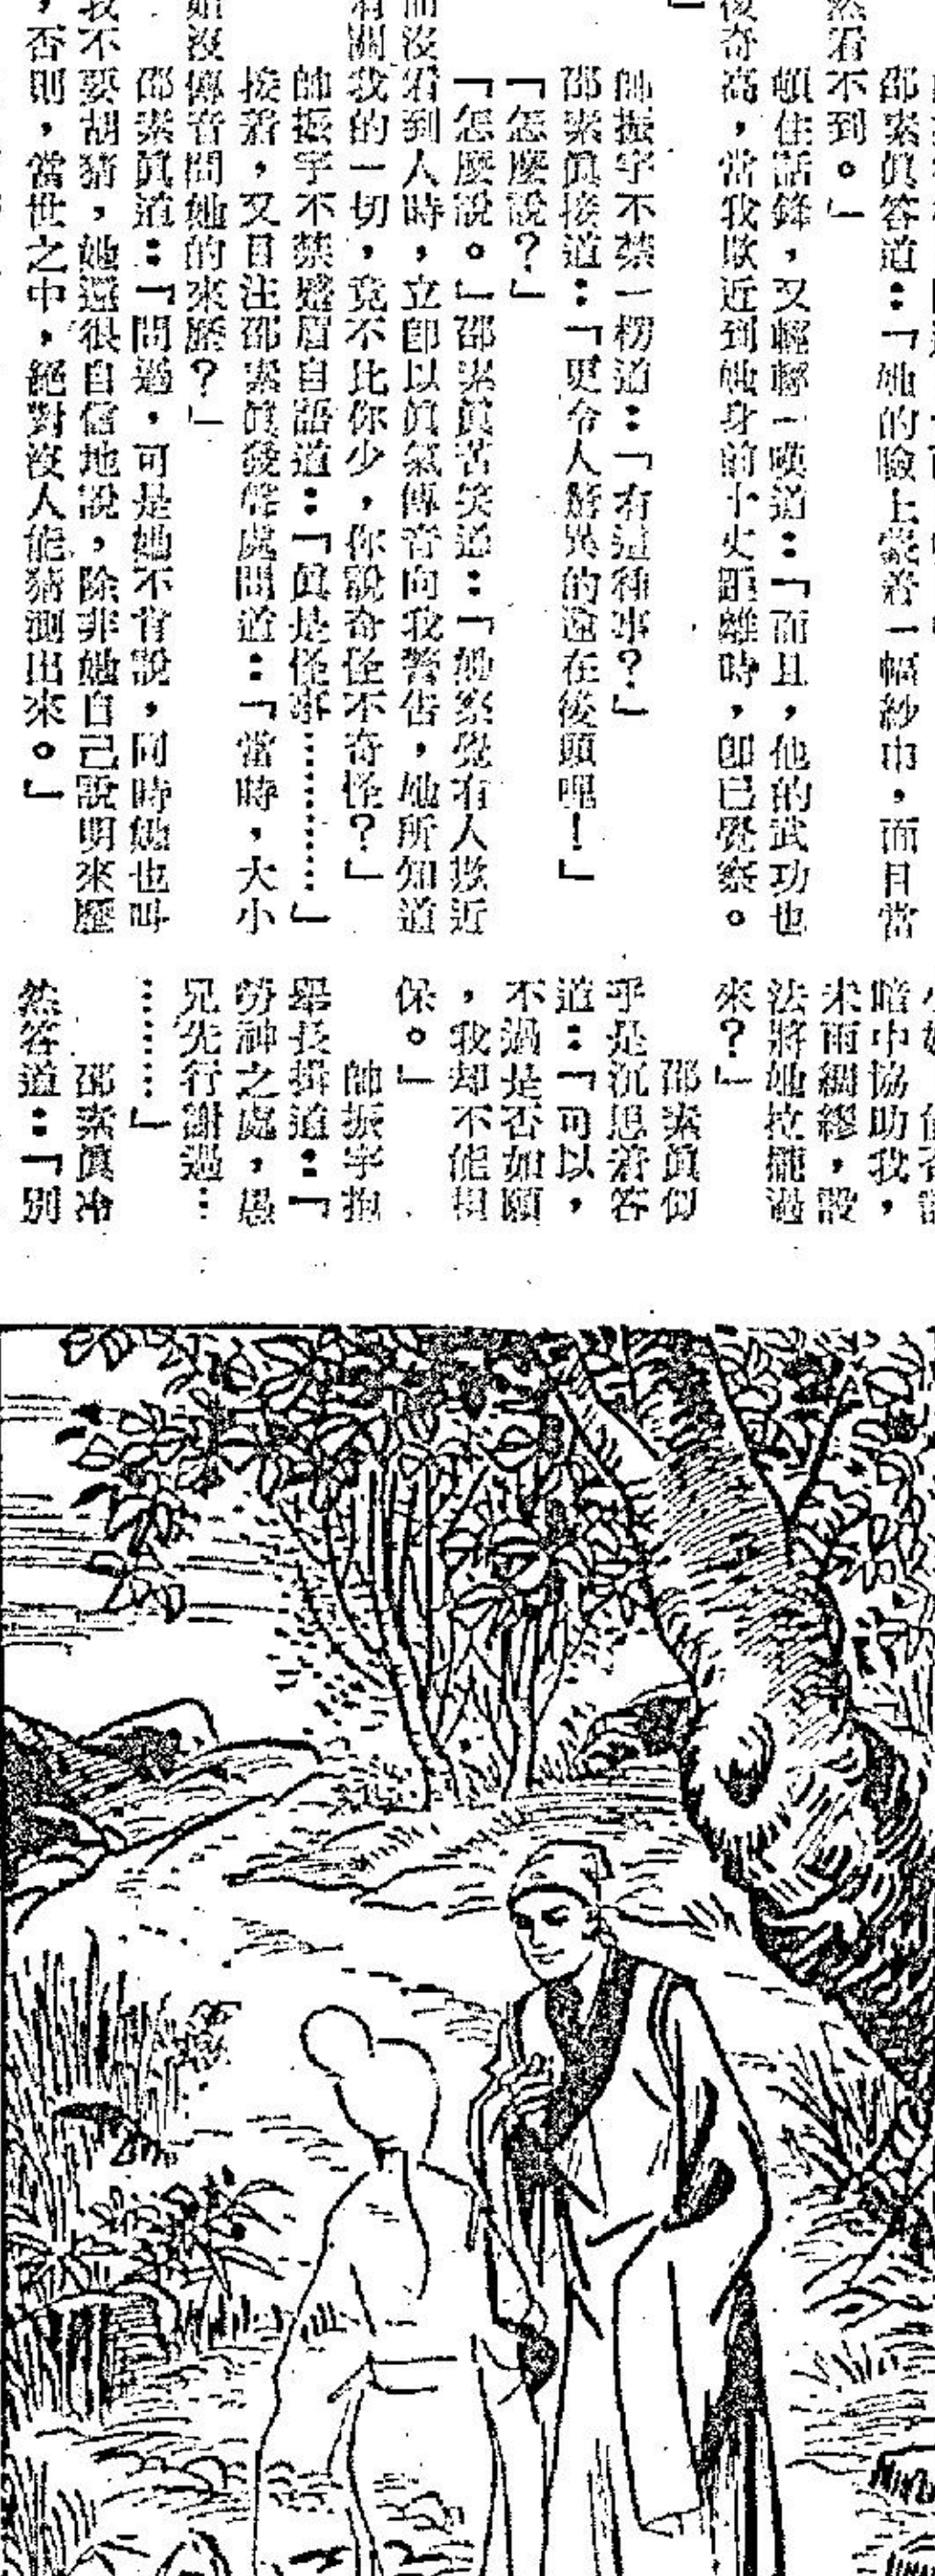 邵素眞答道：「她的臉上蒙着一幅紗巾，面目當
然看不到。」
頓住話鋒，又輕輕一嘆道：「而且，他的武功也
復奇高，當我欺近到她身前十丈距離時，卽已覺察。
」
帥振宇不禁一楞道：「有這種事？」
邵素眞接道：「更令人驚異的還在後頭哩！」
「怎麼說？」
「怎麼說。」邵素眞苦笑道：「她察覺有人欺近
而沒看到人時，立卽以眞氣傳音向我警告，她所知道
有關我的一切，竟不比你少，你說奇怪不奇怪？」
帥振宇不禁蹙眉自語道：「眞是怪事…………」
接着，又目注邵素眞發聲處問道：「當時，大小
姐沒傳音問她的來歷？」
邵素眞道：「問過，可是她不肯說，同時她也叫
我不要胡猜，她還很自信地說，除非她自己說明來歷
，否則，當世之中，絕對沒人能猜測出來。」
暗中協助我，
未雨綢繆，設
法將她拉攏過
來？」
邵素眞似
乎是沉思着答
道：「可以，
不過是否如願
，我却不能担
保。」
帥振宇抱
拳長揖道：「
勞神之處，愚
兄先行謝過…
……」
邵素眞冷
然答道：「別